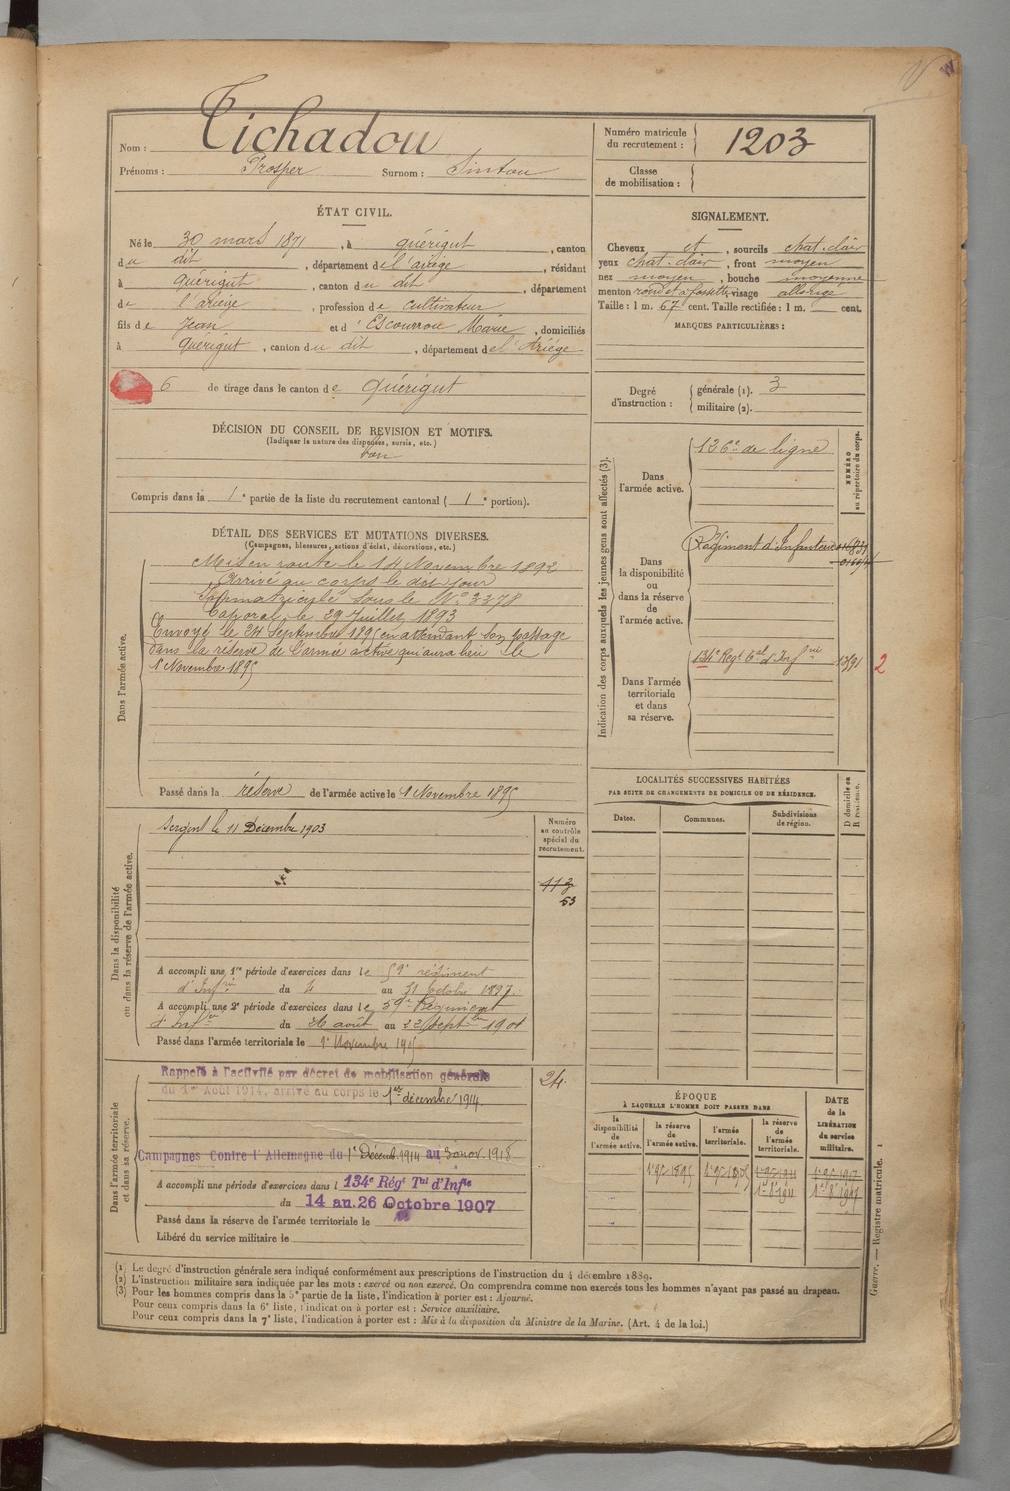 Nom : Tichadou
Prénoms : Prosper Surnom : Sintou
Numéro matricule du recrutement : 1203
Classe de mobilisation :
ÉTAT CIVIL.
Né le 30 mars 1871, à Quérigut, canton
du dit, département de l'ariège, résidant
à Quérigut, canton du dit, département
de l'ariège, profession de cultivateur
fils de Jean et d'Escourrou Marie, domiciliés
à Quérigut, canton du dit, département de l'Ariége
6 de tirage dans le canton de Quérigut
SIGNALEMENT.
Cheveux et, sourcils chat. clair
yeux chat. clair, front moyen
nez moyen, bouche moyenne
menton rond et à fossette, visage allongé
Taille : 1 m. 67 cent. Taille rectifiée : 1 m. cent.
MARQUES PARTICULIÈRES :
Degré d'instruction : générale (1). 3
militaire (2).
DÉCISION DU CONSEIL DE REVISION ET MOTIFS.
(Indiquer la nature des dispenses, sursis, etc.)
bon
Compris dans la 1e partie de la liste du recrutement cantonal (1e portion).
DÉTAIL DES SERVICES ET MUTATIONS DIVERSES.
(Campagnes, blessures, actions d'éclat, décorations, etc.)
Dans l'armée active.
Mis en route le 14 Novembre 1892
Arrivé au corps le dit jour
Immatriculé sous le No 3378
Caporal le 29 Juillet 1893
Envoyé le 24 Septembre 1895 en attendant son passage
dans la réserve de l'armée active qui aura lieu le
1 Novembre 1895
Passé dans la réserve de l'armée active le 1 Novembre 1895
Indication des corps auxquels les jeunes gens sont affectés (3).
NUMÉRO au répertoire du corps.
Dans l'armée active. 126e de ligne
Dans la disponibilité ou dans la réserve de l'armée active. Régiment d'Infanterie
Dans l'armée territoriale et dans sa réserve. 134e Regt Tal d'Infrie 1391 2
LOCALITÉS SUCCESSIVES HABITÉES
PAR SUITE DE CHANGEMENTS DE DOMICILE OU DE RÉSIDENCE.
Dates. Communes. Subdivisions de région. D domicile ou R résidence.
Dans la disponibilité ou dans la réserve de l'armée active.
Sergent le 11 Décembre 1903
Numéro au contrôle spécial du recrutement.
113
53
A accompli une 1re période d'exercices dans le 59e régiment
d'Infrie du 4 au 31 octobre 1897.
A accompli une 2e période d'exercices dans le 59e Régiment
d'Infrie du 26 août au 22 Septbre 1901
Passé dans l'armée territoriale le 1er Novembre 1905
Dans l'armée territoriale et dans sa réserve.
Rappelé à l'activité par décret de mobilisation générale
du 1er Août 1914, arrivé au corps le 1er décembre 1914.
24.
Campagnes Contre l'Allemagne du 1er Décemb. 1914 au 30 nov. 1918
A accompli une période d'exercices dans l 134e Régt Tal d'Infie
du 14 au 26 Octobre 1907
Passé dans la réserve de l'armée territoriale le
Libéré du service militaire le
ÉPOQUE
À LAQUELLE L'HOMME DOIT PASSER DANS
la disponibilité de l'armée active. la réserve de l'armée active. l'armée territoriale. la réserve de l'armée territoriale. DATE de la LIBÉRATION du service militaire.
1er 9bre 1895 1er 9bre 1905 1er 9bre 1911 1er 9bre 1917
(1) Le degré d'instruction générale sera indiqué conformément aux prescriptions de l'instruction du 4 décembre 1889.
(2) L'instruction militaire sera indiquée par les mots : exercé ou non exercé. On comprendra comme non exercés tous les hommes n'ayant pas passé au drapeau.
(3) Pour les hommes compris dans la 5e partie de la liste, l'indication à porter est : Ajourné.
Pour ceux compris dans la 6e liste, l'indication à porter est : Service auxiliaire.
Pour ceux compris dans la 7e liste, l'indication à porter est : Mis à la disposition du Ministre de la Marine. (Art. 4 de la loi.)
Guerre. — Registre matricule. 1